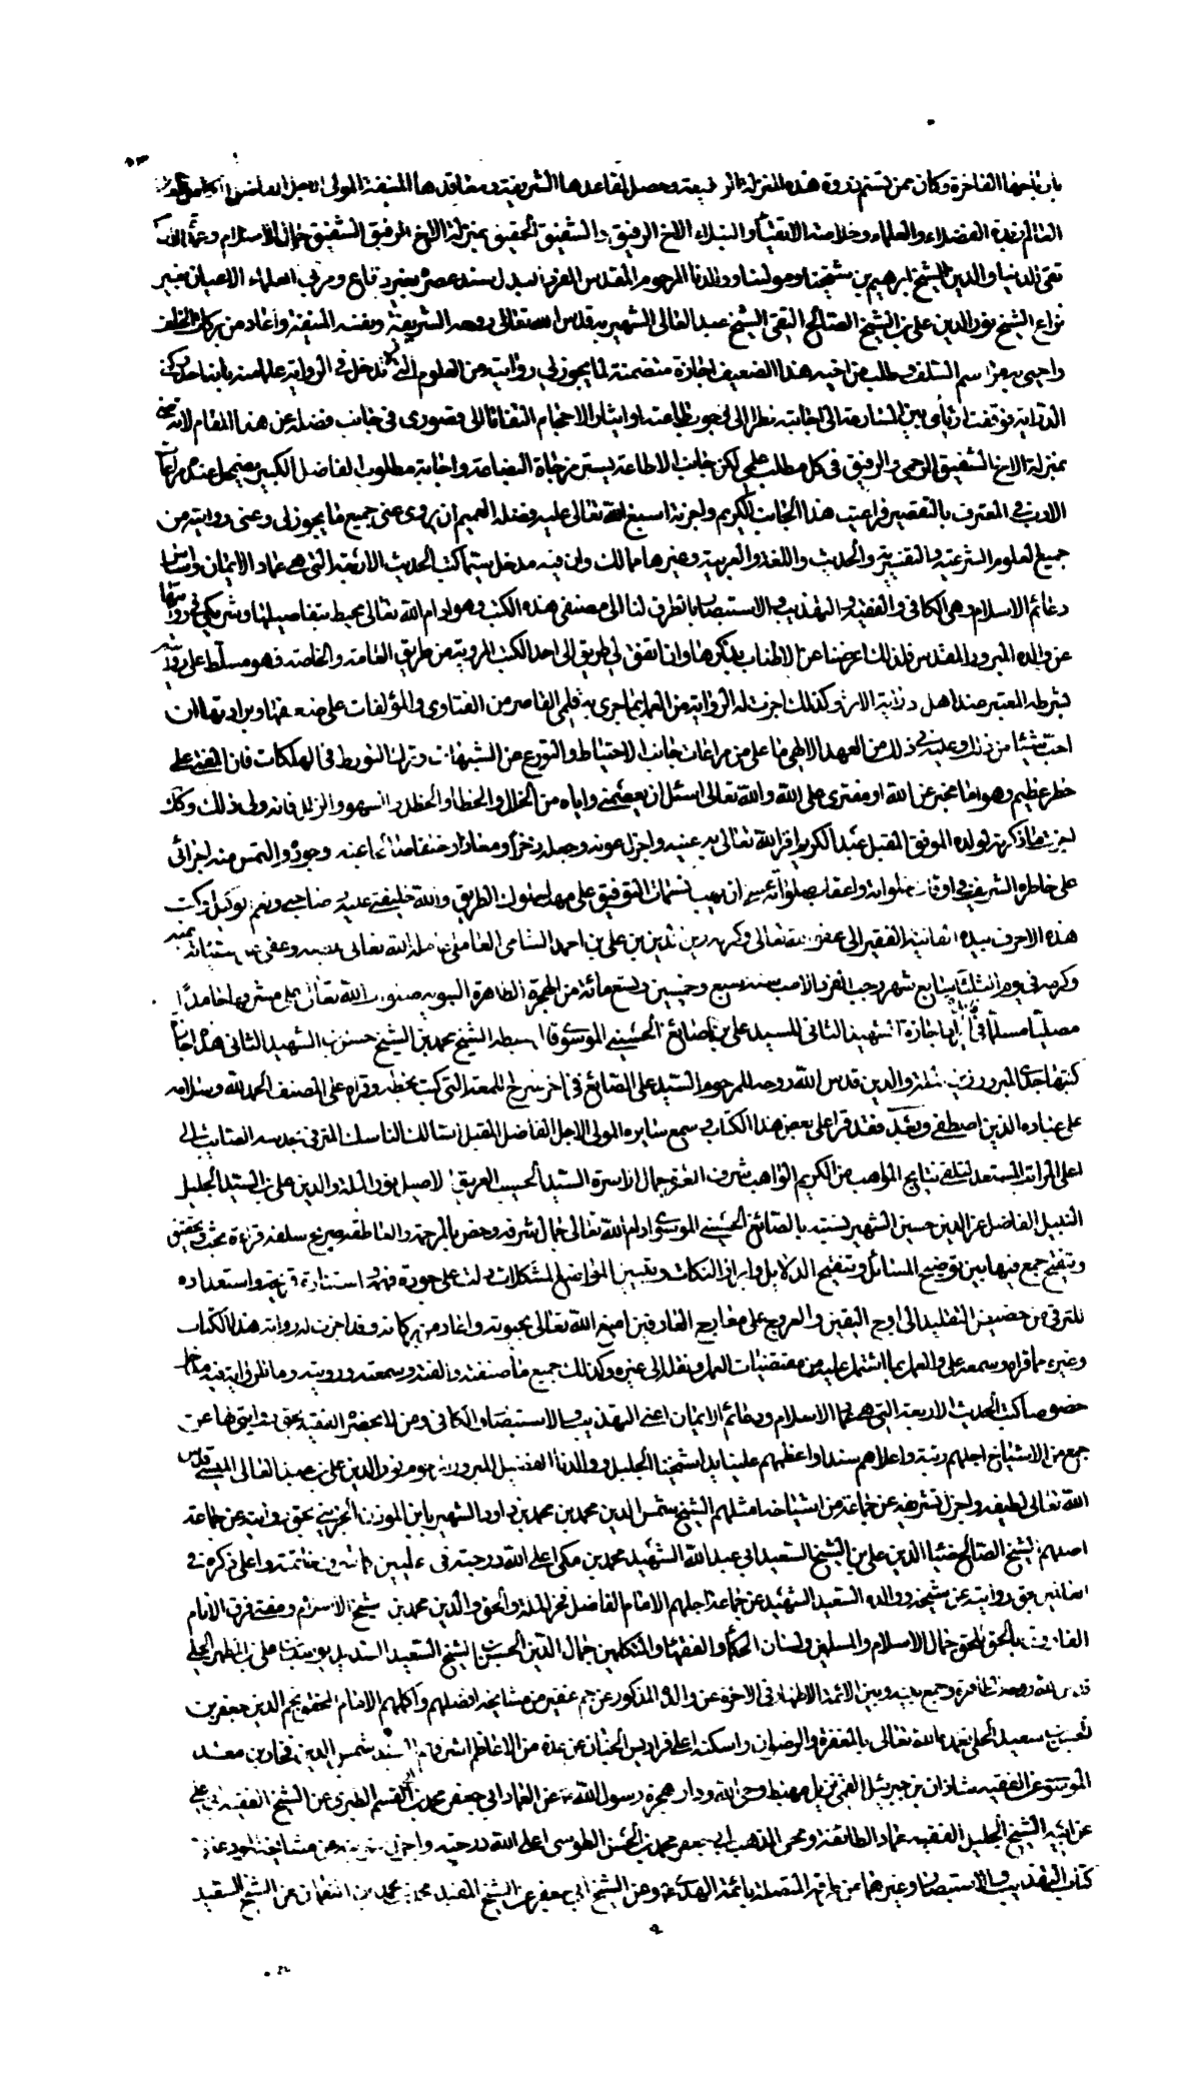 بارباحها الفاخرة وكان ممن تسنم ذروة هذه المنزلة وحصل مقاعدها الشريفة ومعاقدها المنيفة المولى الاجل الفاضل
العالم زبدة الفضلاء والعلماء وخلاصة الاتقياء والنبلاء الاخ الرفيق والشقيق الحقيق بمنزلة الاخ الرفيق الشقيق جمال الاسلام وعمدة
تقي الدنيا والدين الشيخ ابرهيم بن شيخنا ومولينا ووالدنا المرحوم المقدس سند عصره بغير دفاع ومربي العلماء الاعيان بغير
نزاع الشيخ نور الدين علي بن الشيخ الصالح التقي الشيخ عبد العالى الشهير به قدس الله تعالى روحه الشريفة ونفسه المنيفة واعاد من بركاته على الخلف
واحيى به مراسم السلف وطلب من اخيه هذا الضعيف اجازة متضمنة لما يجوز لي روايته من العلوم التي تدخل في الرواية علما منه بانها احد ركني
الدراية فوقفت ارتأي بين المسارعة الى اجابته نظرا الى وجوب طاعته وايثار الاحجام التفاتا الى قصوري في جانب فضله عن هذا المقام لانه
بمنزلة الاخ الشفيق الرحيم والرفيق في كل مطلب علمي لكن جانب الاطاعة يستر مزجاة البضاعة واجابة مطلوب الفاضل الكبير
الادب في المعترف بالتقصير فراعيت هذا الجانب الكريم واجزته اسبغ الله تعالى عليه فضله العميم ان يروي عني جميع ما يجوز لي وعني روايته من
جميع العلوم الشرعية والتفسير والحديث واللغة والعربية وغيرها مما لك ولي فيه مدخل سيما كتب الحديث الاربعة التي هي عماد الايمان واساس
دعائم الاسلام وهي الكافي والفقيه والتهذيب والاستبصار بالطرق لنا الى مصنفي هذه الكتب وهو ادام الله تعالى محيط بتفاصيلها وشريكي في روايتها
عن والده المبرور المقدس فلذلك اعرضنا عن الاطناب بذكرها وان اتفق لي طريق الى احد الكتب المروية من طريق العامة والخاصة فهو مسلط على روايته
بشرطه المعتبر عند اهل دراية الاثر وكذلك اجزت له الرواية والعمل بما جرى به قلمي القاصر من الفتاوى والمؤلفات على ضعفها
احب شيئا من ذلك وعليه في ذلك من العهد الالهي ما علي من مراعات جانب الاحتياط والتورع عن الشبهات وترك التورط في الهلكات فان المفتي على
خطر عظيم وهو اما مخبر عن الله او مفتري على الله والله تعالى اسئل ان يعصمني واياه من الخلل والخطا والخطل والسهو والزلل فانه ولي ذلك وكذلك
اجزت ما ذكرته لولده الموفق المقبل عبد الكريم اقر الله تعالى به عينيه واجزل عونه وجعله ذخرا ومعاذا وخلفا صالحا عنه وجوده والتمس منه اجرائي
على خاطره الشريف في اوقات خلواته واعقاب صلواته عسى ان يهب نسمات التوفيق على مهد لسلوك الطريق والله خليفتي عليه صاحبي ونعم الوكيل وكتب
هذه الاحرف بيده الفانية الفقير الى عفو الله تعالى وكرمه زين الدين بن علي بن احمد الشامي العاملي عامله الله تعالى بلطفه وعفى عن سيئاته بمنه
وكرمه في يوم الثلثا سابع شهر رجب الفرد الاصب سنة سبع وخمسين وتسعمائة من الهجرة الطاهرة النبوية صلوات الله تعالى على مشرفها حامدا
مصليا مسلما اجازة الشهيد الثاني للسيد علي بن الصائغ الحسيني الموسوي قال سبطه الشيخ محمد بن الشيخ حسن بن الشهيد الثاني هذه اجازة
كتبها جدي المبرور زين الملة والدين قدس الله روحه للمرحوم السيد علي الصائغ في اخر شرح اللمعة التي كتبت بخطه وقراه على المصنف الحمد لله وسلامه
على عباده الذين اصطفى وبعد فقد قرا علي بعض هذا الكتاب وسمع سايره المولى الاجل الفاضل المقبل السالك الناسك المترقي الى
اعلى المراتب المستعد لتلقي نتايج المواهب من الكريم الواهب شرف العترة جمال الاسرة السيد الحسيب العريق الاصيل نور الملة والدين علي بن السيد الجليل
النبيل الفاضل عز الدين حسين الشهير نسبته بالصائغ الحسيني الموسوي ادام الله تعالى جمال شرفه وخص بالرحمة والعاطفة ضريح سلفه قراءة بحث وتحقيق
وتنقيح جمع فيها بين توضيح المسائل وتنقيح الدلايل وابراز النكات وتبيين المواضع المشكلات دلت على جودة فهمه واستنارة قريحته واستعداده
للترقي من حضيض التقليد الى اوج اليقين والعروج على معارج العارفين امتع الله تعالى بحيوته واعاد من بركاته وقد اجزت له رواية هذا الكتاب
وغيره مما قراه وسمعه علي والعمل بما اشتمل عليه من مقتضيات العمل ونقله الى غيره وكذلك جميع ما صنفته والفته وسمعته ورويته وما للرواية فيه مدخل
خصوصا كتب الحديث الاربعة التي هي عماد الاسلام ودعائم الايمان اعني التهذيب والاستبصار والكافي ومن لا يحضره الفقيه بحق روايتي لها عن
جمع من الاشياخ اجلهم رتبة واعلاهم سندا واعظمهم علينا يدا شيخنا الجليل ووالدنا الفضيل المبرور المرحوم نور الدين علي بن عبد العالى الميسي قدس
الله تعالى لطيفه واجزل تشريفه عن جماعة من اشياخه امثلهم الشيخ شمس الدين محمد بن محمد بن داود الشهير بابن المؤذن الجزيني بحق روايته عن جماعة
اصلهم الشيخ الصالح ضياء الدين علي بن الشيخ السعيد ابي عبد الله الشهيد محمد بن مكي اعلى الله درجته في عليين كما شرف خاتمته واعلى ذكره في
العالمين بحق روايته عن شيخه ووالده السعيد الشهيد عن جماعة اجلهم الامام الفاضل فخر الملة والحق والدين محمد بن شيخ الاسلام ومفتي فرق الانام
الفاروق بالحق للحق جمال الاسلام والمسلمين ولسان الحكماء والفقهاء والمتكلمين جمال الدين الحسن بن الشيخ السعيد السديد يوسف بن علي بن المطهر الحلي
قدس الله روحه الطاهرة وجمع بينه وبين الائمة الاطهار في الاخرة عن والده المذكور عن جم غفير من مشايخه افضلهم واكملهم الامام المحقق نجم الدين جعفر بن
الحسن بن سعيد الحلي تغمده الله تعالى بالمغفرة والرضوان واسكنه اعلى فراديس الجنان عن عدة من الافاظم اشرفهم السيد شمس الدين فخار بن معد
الموسوي عن الفقيه شاذان بن جبرئيل القمي نزيل مهبط وحي الله ودار هجرة رسول الله ص عن العماد ابي جعفر محمد بن ابي القسم الطبري عن الشيخ الفقيه ابي علي
عن ابيه الشيخ الجليل الفقيه عماد الطائفة ومحيي المذهب ابي جعفر محمد بن الحسن الطوسي اعلى الله درجته واجزل مثوبته عن مشايخه المودعة
كتاب التهذيب والاستبصار وغيرهما عن طرقه المتصلة بائمة الهدى ع وعن الشيخ ابي جعفر عن الشيخ المفيد محمد بن محمد بن النعمان عن الشيخ السعيد